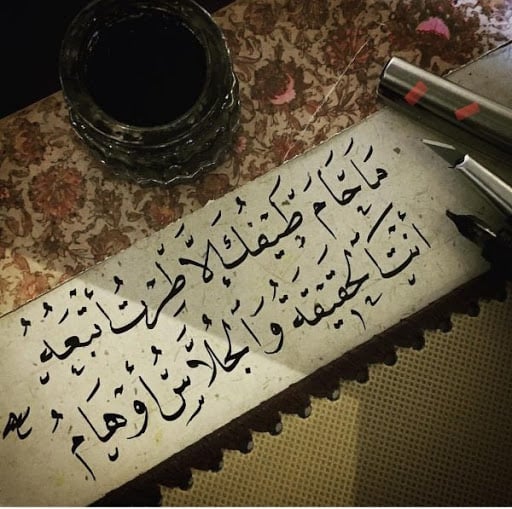 مَا حَامَ طَيفُكَ إلَّا طِرْتُ أَتْبَعُهُ
أَنْتَ الحَقِيقَةُ وَالجُلَّاسُ أَوْهَامُ